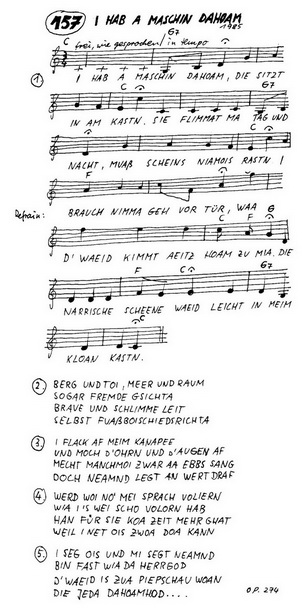 157 I HAB A MASCHIN DAHOAM
1985
C frei, wie gesprochen / in tempo G7
1. I HAB A MASCHIN DAHOAM, DIE SITZT
C G7
IN AM KASTN. SIE FLIMMAT MA TAG UND
C
NACHT, MUAß SCHEINS NIAMOIS RASTN I
F
BRAUCH NIMMA GEH VOR TÜR, WAA
Refrain: C F G
D' WAEID KIMMT AEITZ HOAM ZU MIA. DIE
F C G7
NARRISCHE SCHEENE WAEID LEICHT IN MEIM
C
KLOAN KASTN.
2. BERG UND TOI, MEER UND RAUM
SOGAR FREMDE GSICHTA
BRAVE UND SCHLIMME LEIT
SELBST FUAßBOISCHIEDSRICHTA
3. I FLACK AF MEIM KANAPEE
UND MOCH D'OHRN UND D'AUGEN AF
MECHT MANCHMOI ZWAR AA EBBS SANG
DOCH NEAMND LEGT AN WERT DRAF
4. WERD WOI NO' MEI SPRACH VOLIERN
WIA I'S WEI SCHO VOLORN HAB
HAN FÜR SIE KOA ZEIT MEHR GHAT
WEIL I NET OIS ZWOA DOA KANN
5. I SEG OIS UND MI SEGT NEAMND
BIN FAST WIA DA HERRGOD
D'WAEID IS ZUA PIEPSCHAU WOAN
DIE JEDA DAHOAMHOD....
OP. 274